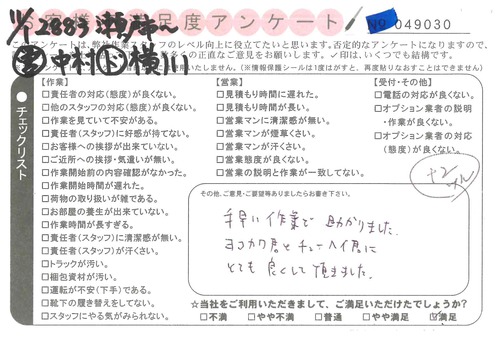 お客様満足度アンケート No 049030
11/28829 瀬戸市〜
このアンケートは、弊社作業スタッフのレベル向上に役立てたいと思います。否定的なアンケートになりますので、
の正直なご意見をお願いします。✓印は、いくつでも結構です。
中村 ド 横川
いたしません。(※情報保護シールは1度はがすと、再度貼りなおすことはできません)
●チェックリスト
【作業】
□責任者の対応(態度)が良くない。
□他のスタッフの対応(態度)が良くない。
□作業を見ていて不安がある。
□責任者(スタッフ)に好感が持てない。
□お客様への挨拶が出来ていない。
□ご近所への挨拶・気遣いが無い。
□作業開始前の内容確認がなかった。
□作業開始時間が遅れた。
□荷物の取り扱いが雑である。
□お部屋の養生が出来ていない。
□作業時間が長すぎる。
□責任者(スタッフ)に清潔感が無い。
□責任者(スタッフ)が汗くさい。
□トラックが汚い。
□梱包資材が汚い。
□運転が不安(下手)である。
□靴下の履き替えをしてない。
□スタッフにやる気がみられない。
【営業】
□見積もり時間に遅れた。
□見積もり時間が長い。
□営業マンに清潔感が無い。
□営業マンが煙草くさい。
□営業マンが汗くさい。
□営業態度が良くない。
□営業の説明と作業が一致してない。
【受付・その他】
□電話の対応が良くない。
□オプション業者の説明
・作業が良くない。
□オプション業者の対応
(態度)が良くない。
その他、ご意見・ご要望等ありましたらお書き下さい。
手早い作業で助かりました。
ヨコカワ君とチューヘイ君に
とても良くして頂きました。
☆当社をご利用いただきまして、ご満足いただけたでしょうか?
□不満 □やや不満 □普通 □やや満足 ☑満足